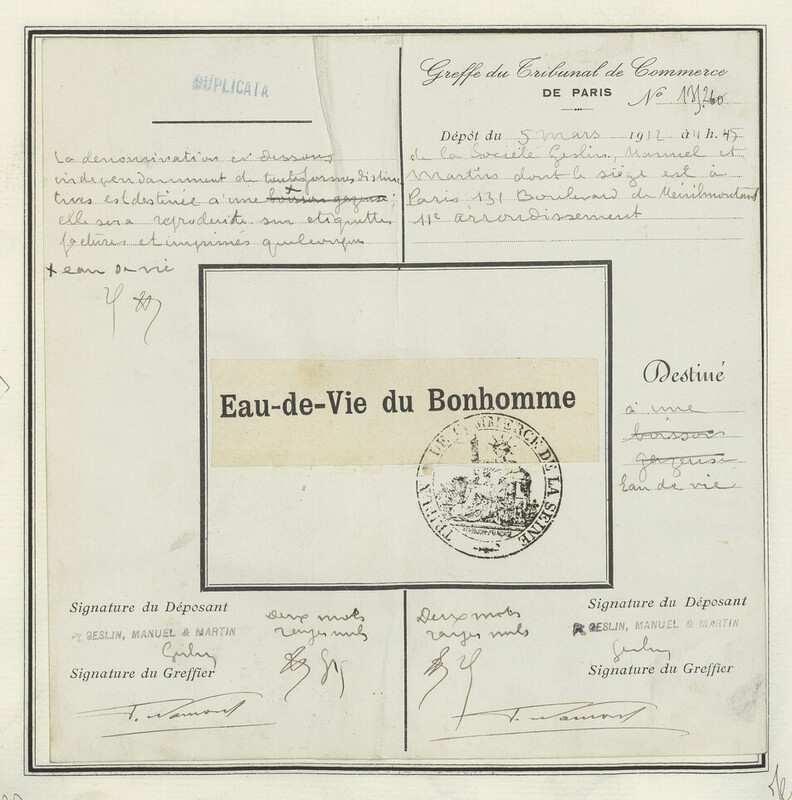 DUPLICATA
La dénomination ci dessous
independamment de toutes formes distinc
tives est destinée à une boisson gazeuse;
elle sera reproduite sur etiquettes
factures et imprimés quelconques
x eau de vie
Greffe du Tribunal de Commerce
DE PARIS
No
Dépôt du 5 mars 1912 à 11 h. 45
de la Société Geslin, Manuel et
Martin dont le siège est à
Paris 131 Boulevard de Ménilmontant
11e arrondissement
Eau-de-Vie du Bonhomme
TRIBUNAL DE COMMERCE DE LA SEINE
Destiné
à une
boisson
gazeuse
Eau de vie
Signature du Déposant
GESLIN, MANUEL & MARTIN
Geslin
Signature du Greffier
Deux mots
rayés nuls
Deux mots
rayés nuls
Signature du Déposant
GESLIN, MANUEL & MARTIN
Geslin
Signature du Greffier